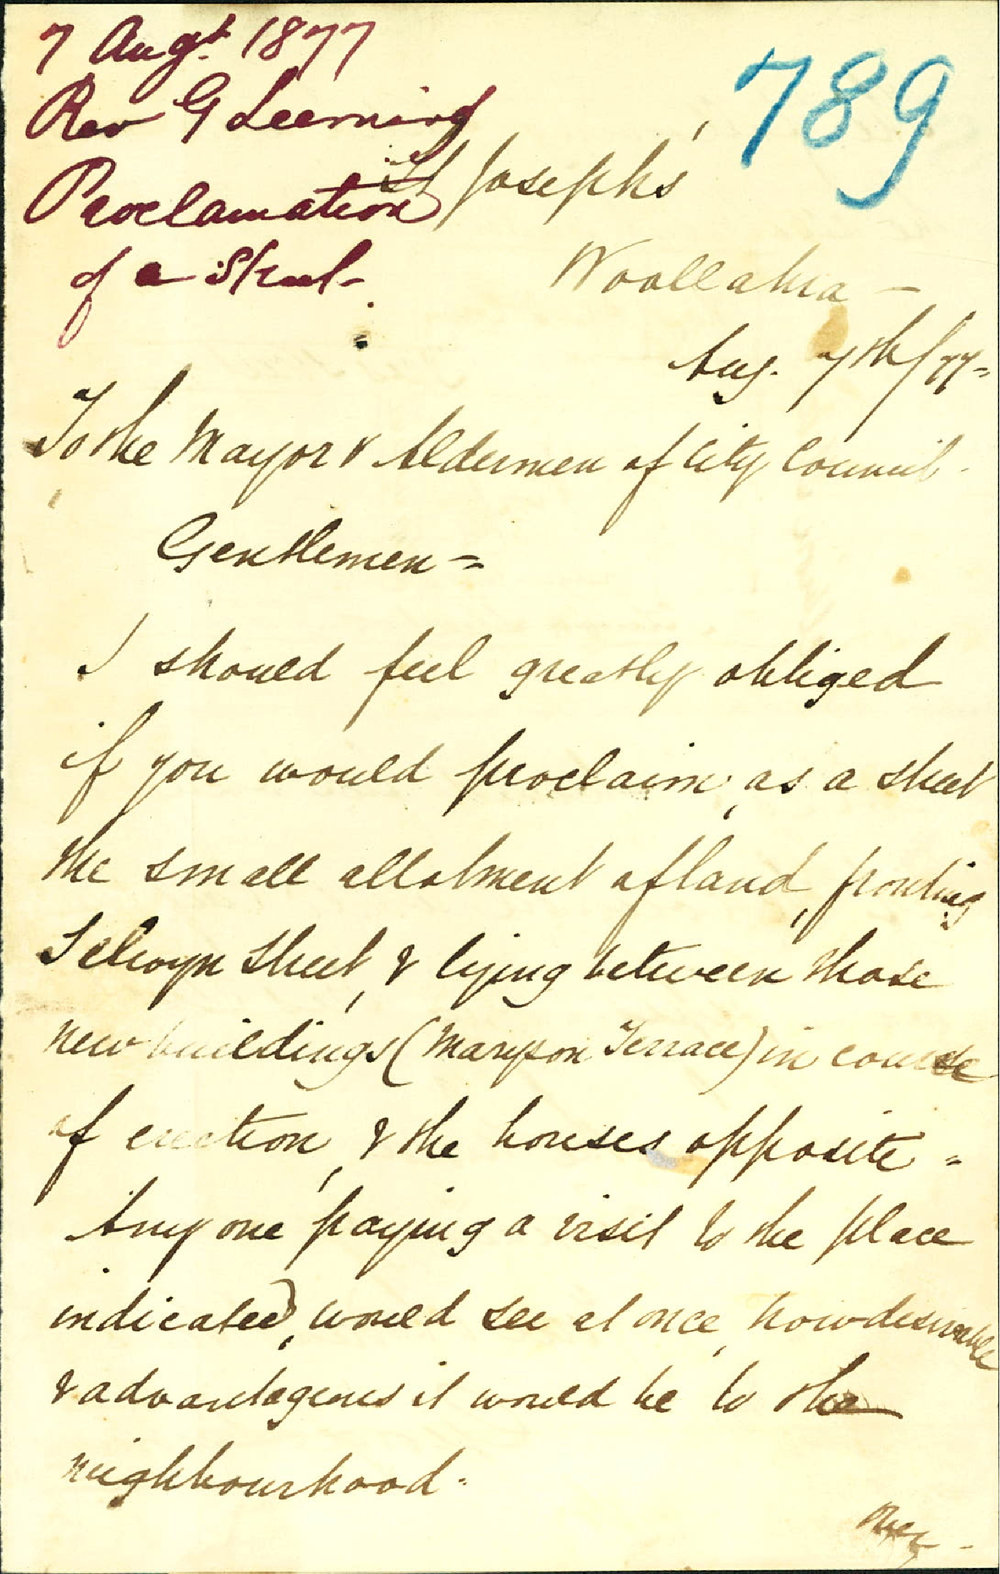 7 Augt. 1877
789
Rev G Leeming
Proclamation
of a Street.
St Joseph's
Woollahra -
Aug. 7th/77-
To the Mayor & Aldermen of City Council.
Gentlemen -
I should feel greatly obliged
if you would proclaim, as a street
the small allotment of land, fronting
Selwyn Street, & lying between those
new buildings (Maryson Terrace) in course
of erection, & the houses opposite -
Any one paying a visit to the place
indicated, would see at once, how desirable
& advantageous it would be to the
neighbourhood.